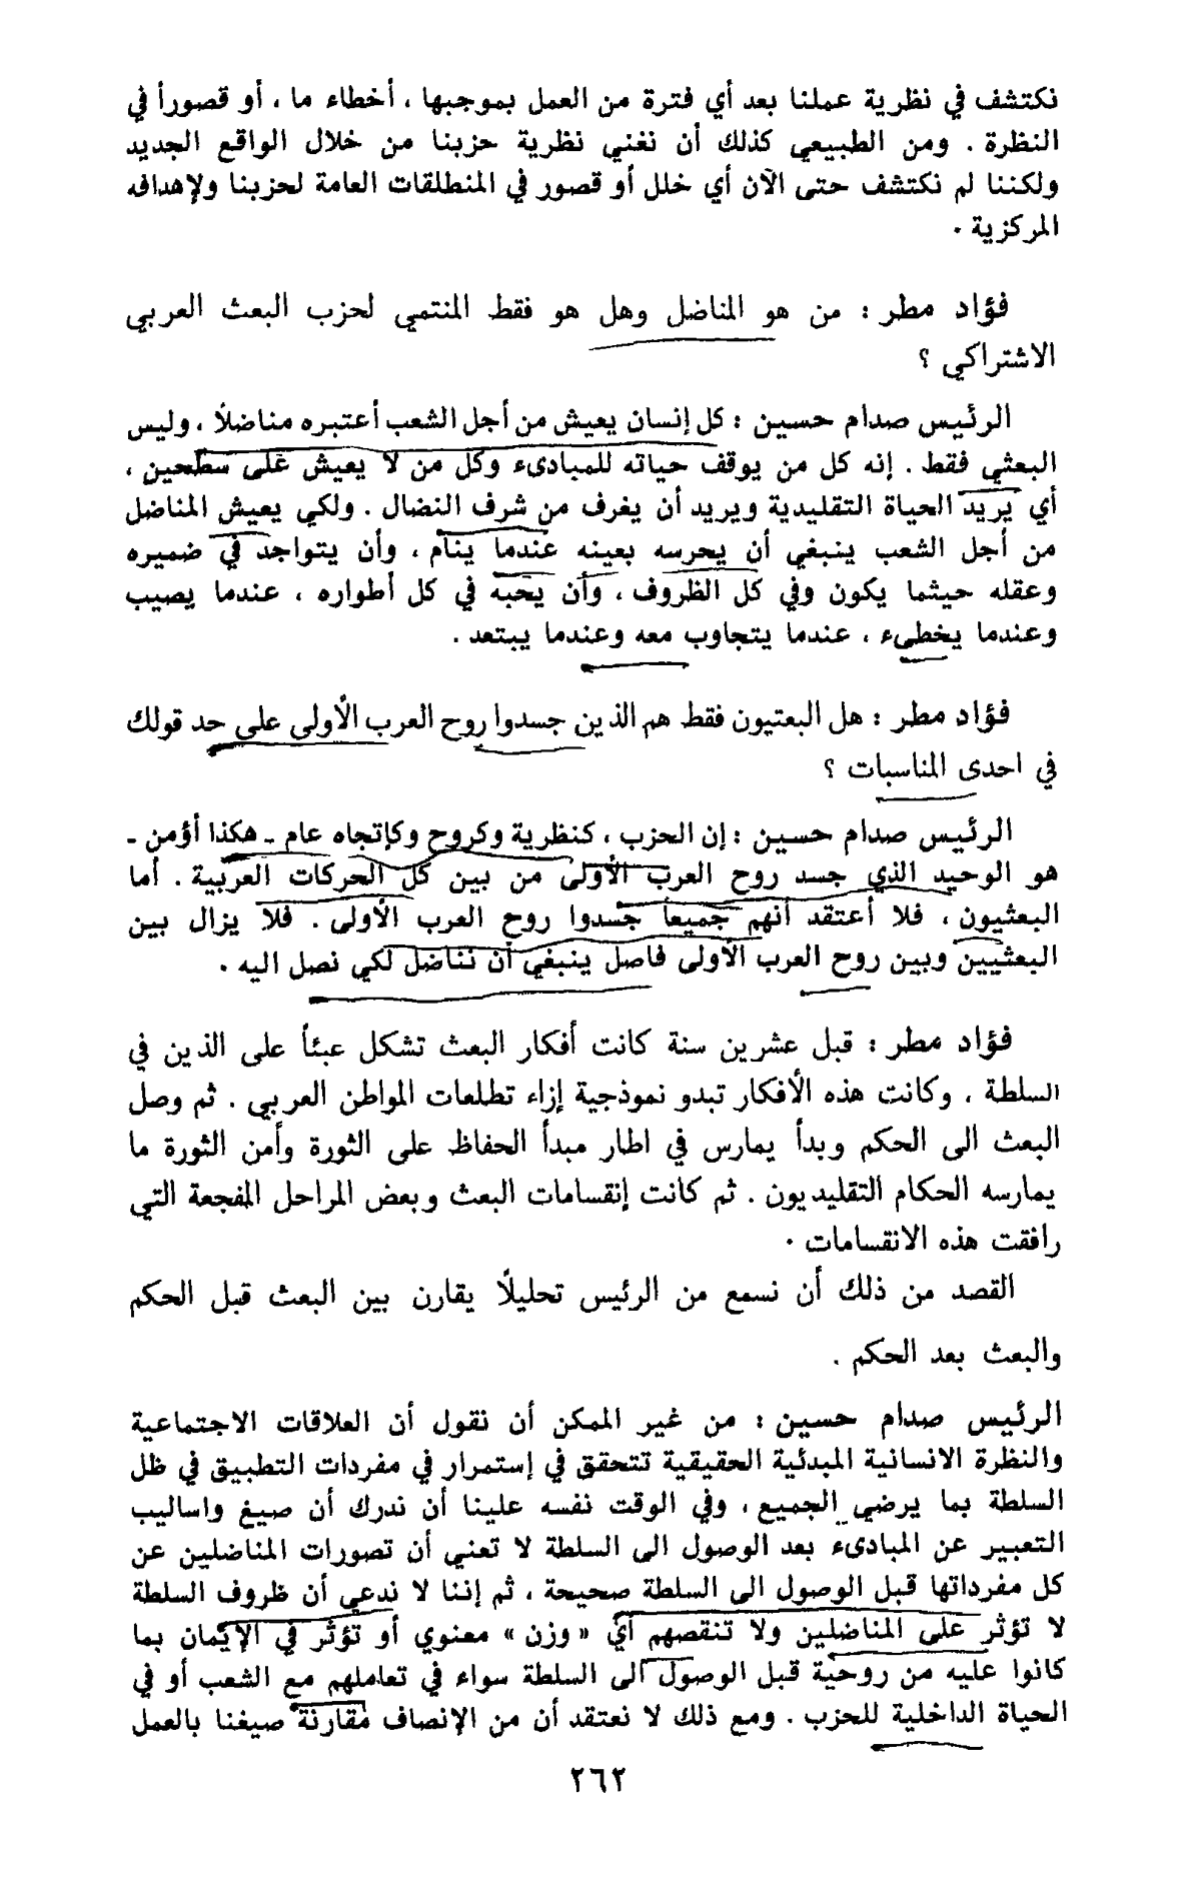 نكتشف في نظرية عملنا بعد أي فترة من العمل بموجبها ، أخطاء ما ، أو قصوراً في
النظرة . ومن الطبيعي كذلك أن نغني نظرية حزبنا من خلال الواقع الجديد
ولكننا لم نكتشف حتى الآن أي خلل أو قصور في المنطلقات العامة لحزبنا ولإهدافه
المركزية .
فؤاد مطر : من هو المناضل وهل هو فقط المنتمي لحزب البعث العربي
الاشتراكي ؟
الرئيس صدام حسين : كل إنسان يعيش من أجل الشعب أعتبره مناضلاً ، وليس
البعثي فقط . إنه كل من يوقف حياته للمبادىء وكل من لا يعيش على سطحين ،
أي يريد الحياة التقليدية ويريد أن يغرف من شرف النضال . ولكي يعيش المناضل
من أجل الشعب ينبغي أن يحرسه بعينه عندما ينام ، وأن يتواجد في ضميره
وعقله حيثما يكون وفي كل الظروف ، وأن يحبه في كل أطواره ، عندما يصيب
وعندما يخطىء ، عندما يتجاوب معه وعندما يبتعد .
فؤاد مطر : هل البعتيون فقط هم الذين جسدوا روح العرب الأولى على حد قولك
في احدى المناسبات ؟
الرئيس صدام حسين : إن الحزب ، كنظرية وكروح وكإتجاه عام ـ هكذا أؤمن ـ
هو الوحيد الذي جسد روح العرب الأولى من بين كل الحركات العربية . أما
البعثيون ، فلا أعتقد أنهم جميعاً جسدوا روح العرب الأولى . فلا يزال بين
البعثيين وبين روح العرب الأولى فاصل ينبغي أن نناضل لكي نصل اليه .
فؤاد مطر : قبل عشرين سنة كانت أفكار البعث تشكل عبئاً على الذين في
السلطة ، وكانت هذه الأفكار تبدو نموذجية إزاء تطلعات المواطن العربي . ثم وصل
البعث الى الحكم وبدأ يمارس في اطار مبدأ الحفاظ على الثورة وأمن الثورة ما
يمارسه الحكام التقليديون . ثم كانت إنقسامات البعث وبعض المراحل المفجعة التي
رافقت هذه الانقسامات .
القصد من ذلك أن نسمع من الرئيس تحليلاً يقارن بين البعث قبل الحكم
والبعث بعد الحكم .
الرئيس صدام حسين : من غير الممكن أن نقول أن العلاقات الاجتماعية
والنظرة الانسانية المبدئية الحقيقية تتحقق في إستمرار في مفردات التطبيق في ظل
السلطة بما يرضي الجميع ، وفي الوقت نفسه علينا أن ندرك أن صيغ واساليب
التعبير عن المبادىء بعد الوصول الى السلطة لا تعني أن تصورات المناضلين عن
كل مفرداتها قبل الوصول الى السلطة صحيحة ، ثم إننا لا ندعي أن ظروف السلطة
لا تؤثر على المناضلين ولا تنقصهم أي « وزن » معنوي أو تؤثر في الإيمان بما
كانوا عليه من روحية قبل الوصول الى السلطة سواء في تعاملهم مع الشعب أو في
الحياة الداخلية للحزب . ومع ذلك لا نعتقد أن من الإنصاف مقارنة صيغنا بالعمل
٢٦٢